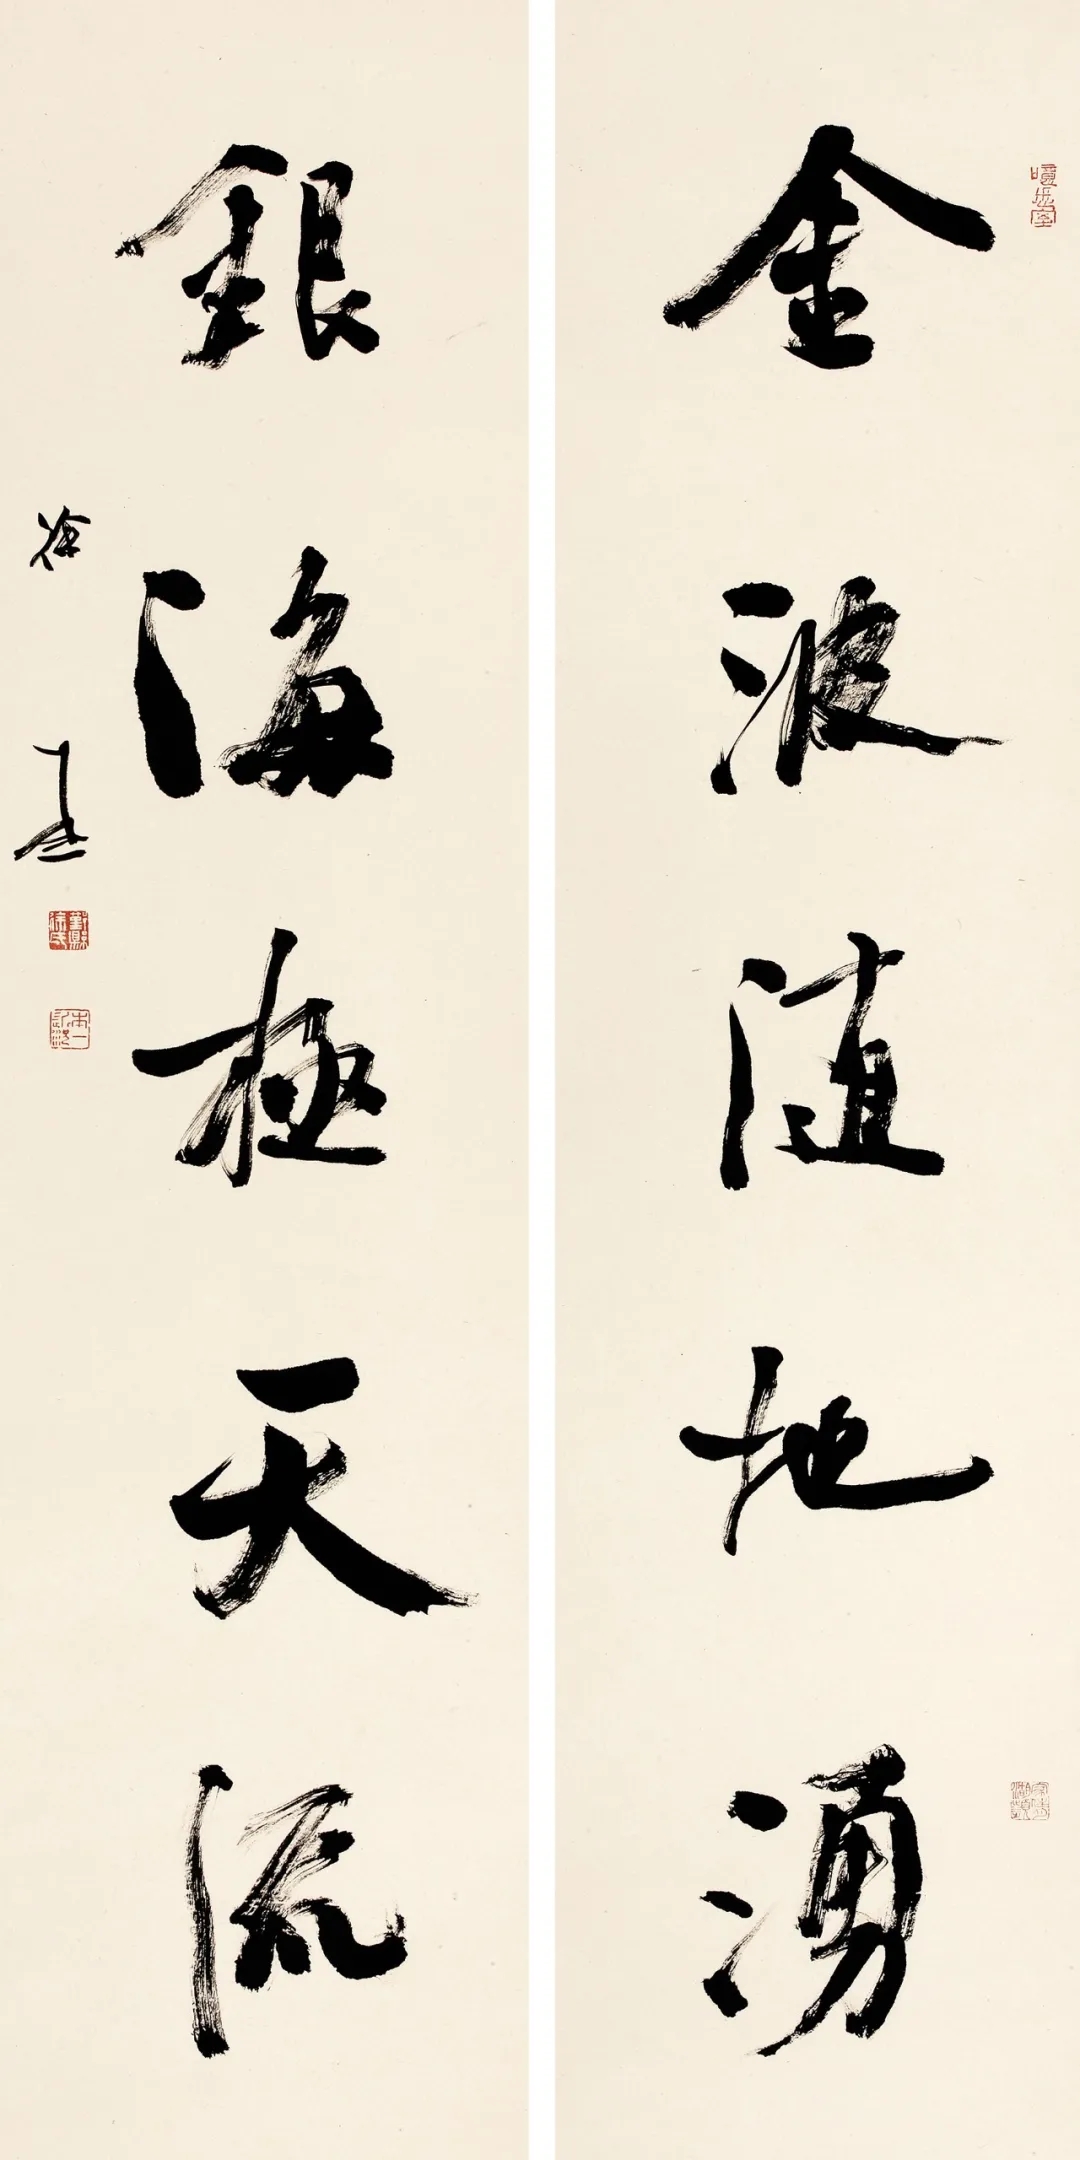 金波随地湧
銀海極天流
徐